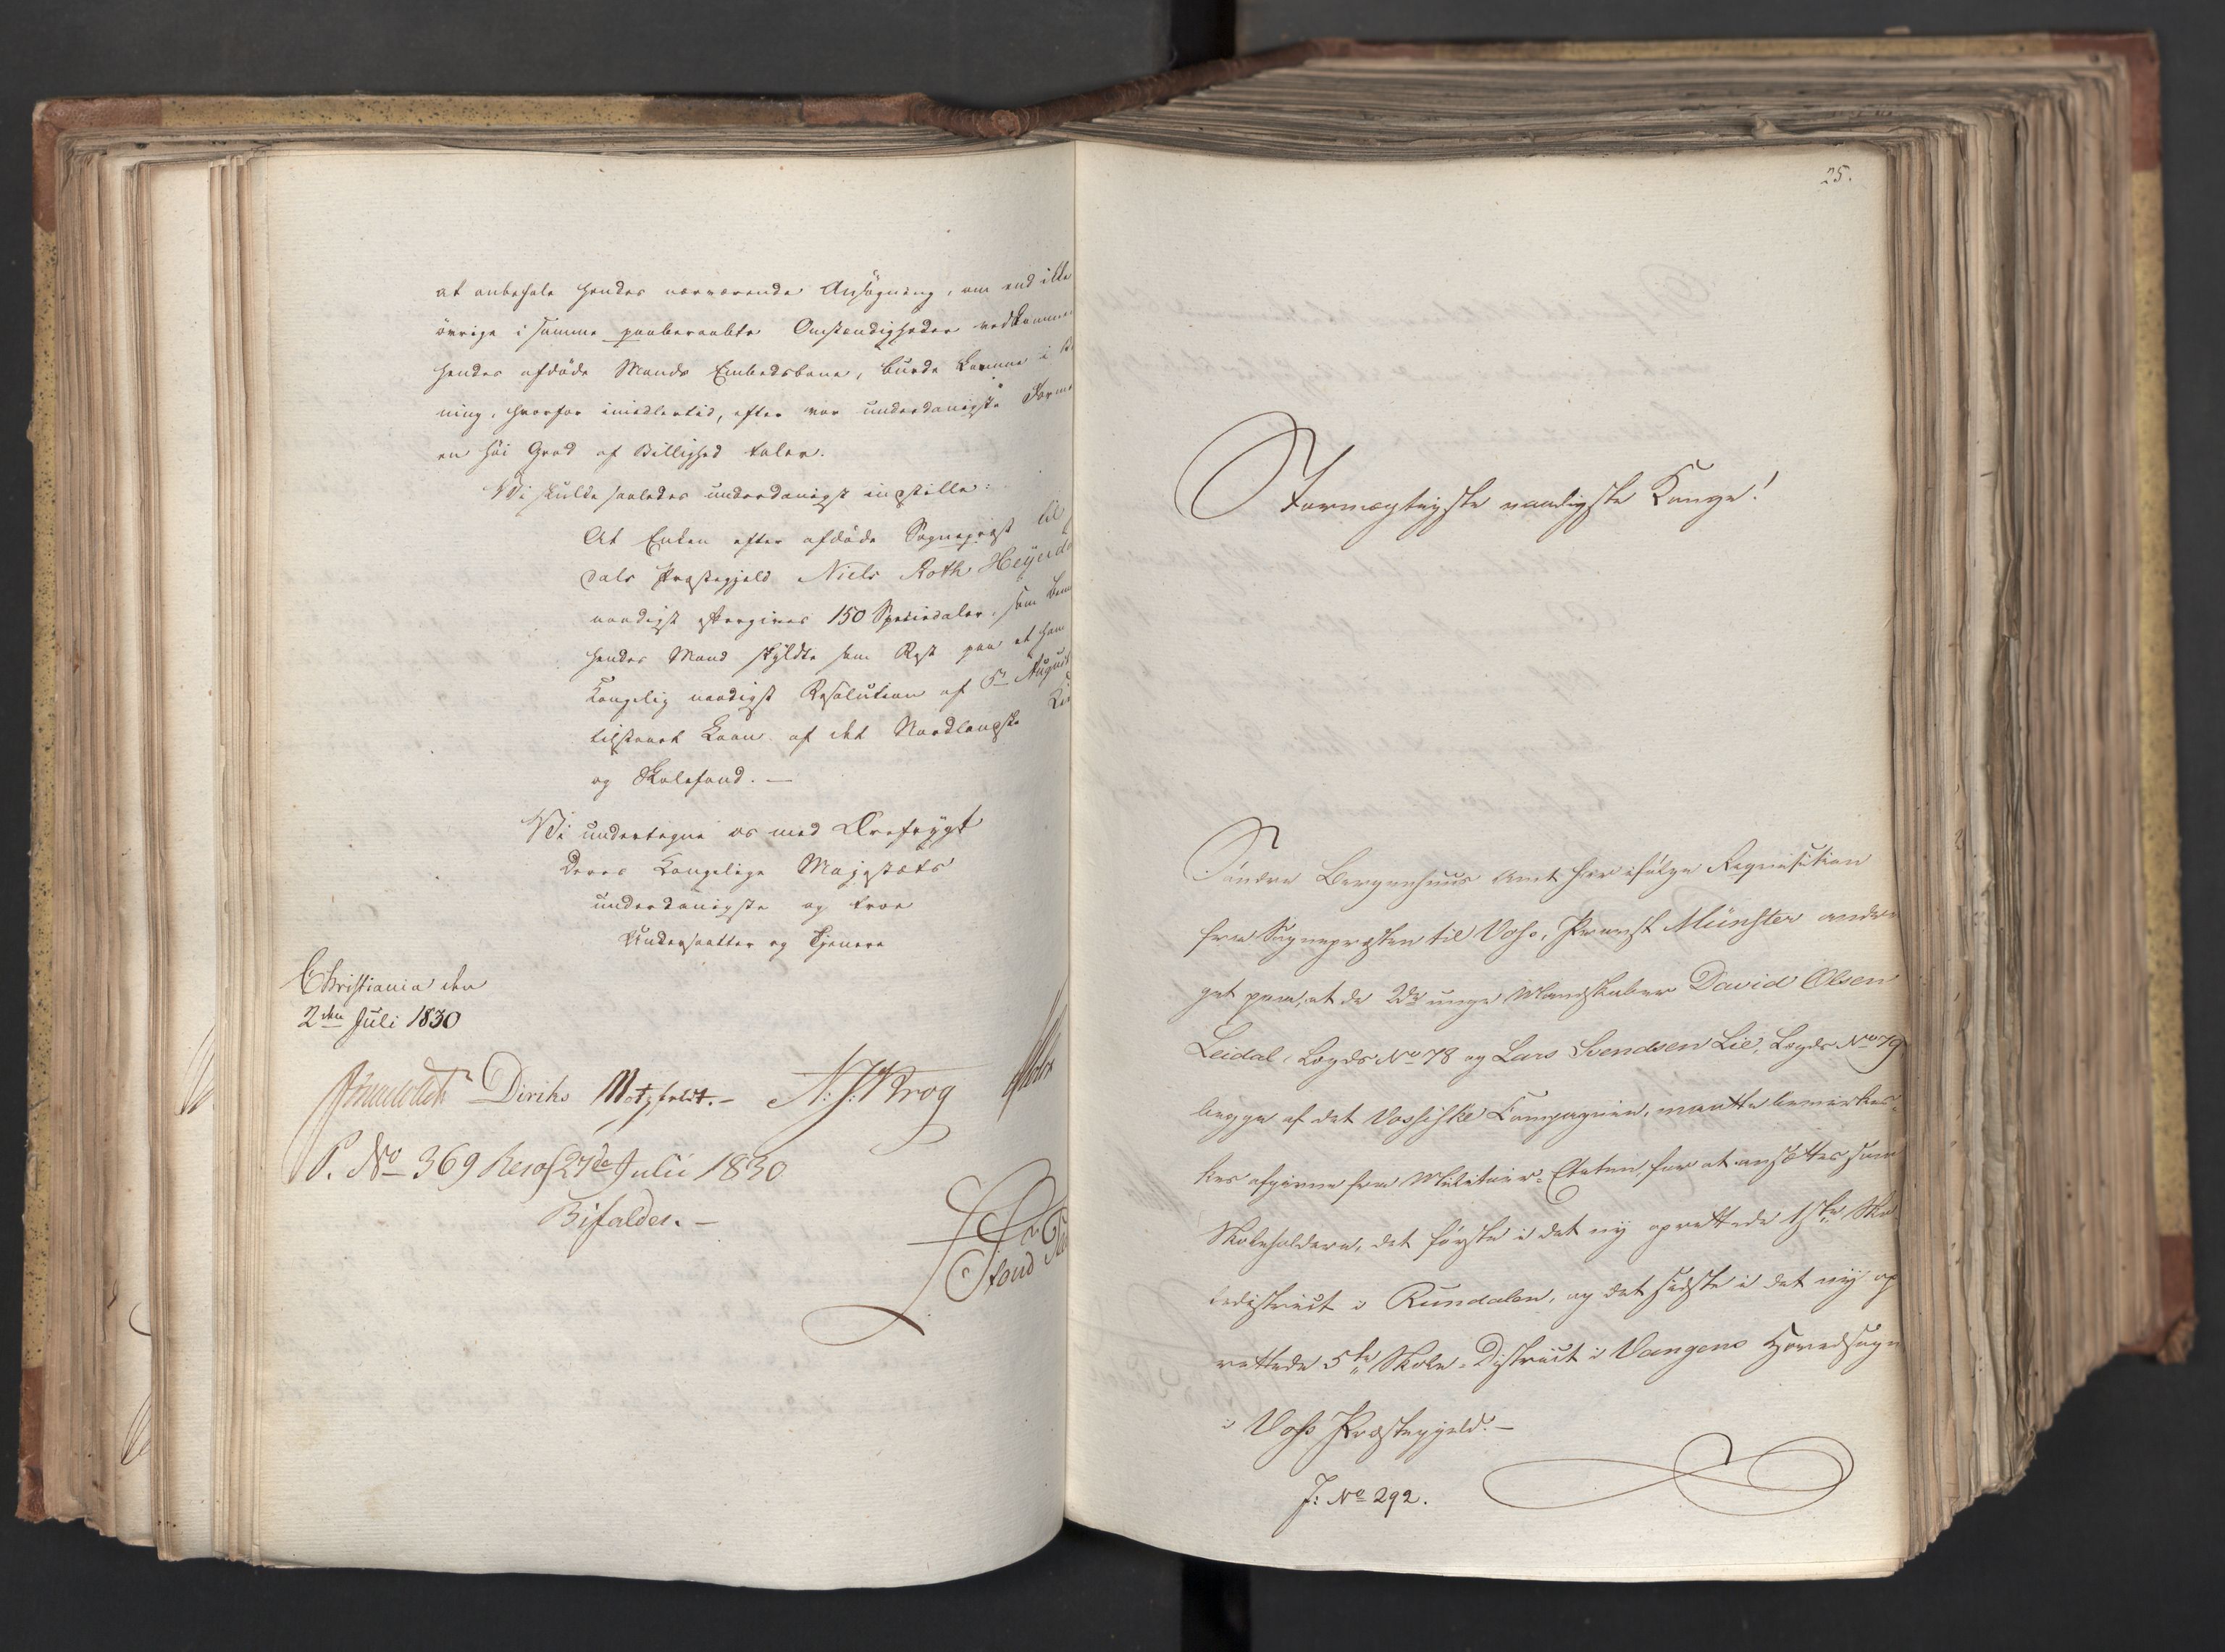 at anbefale hendes nærværende Ansøgning, om end ikke
övrige i samme paaberaabte Omstændigheder vedkomme
hendes afdöde Mands Embedsbane, burde komme i
ning, hvorfor imidlertid, efter vor underdanigste Forme
en höi Grad af Billighed taler.
Vi skulde saaledes underdanigst indstille:
At Enken efter afdöde Sognepræst til
dals Præstegjeld Niels Roth Heyerda
naadigst eftergives 150 Speciedaler, som
hendes Mand skyldte som Rest paa et ham
Kongelig naadigst Resolution af 5te August
tilstaaet Laan af det Nordlandske
og Skolefond. —
Vi undertegne os med Ærefrygt
Deres Kongelige Majestæts
underdanigste og troe
Undersaatter og Tjenere
Christiania den
2den Juli 1830
Diriks Motzfeldt. — N: J: Krog
P. No 369 Resol 27de Julii 1830
Bifaldes. —
25.
Stormægtigste naadigste Konge!
Söndre Bergenhuus Amt har ifölge Requisition
fra Sognepræsten til Voss, Provst Münster andra
get paa, at de 2de unge Mandskaber David Olsen
Leidal, Lægds No 78 og Lars Svendsen Lie, Lægds No 79
begge af det Vossiske Compagnie, maatte bevirkes
kes afgivne fra Militair-Etaten, for at ansættes som
Skoleholdere, det förste i det ny oprettede 1ste Sko
ledistrict i Rundalen, og det sidste i det ny op
rettede 5te Skole-District i Vangens Hovedsogn
i Voss Præstegjeld. —
J: No 292.